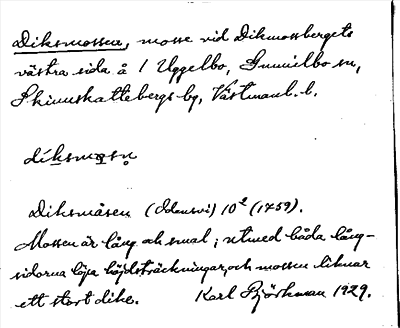 Diksmossen, mosse vid Dikmossbergets
västra sida å 1 Uggelbo, Gunnilbo sn,
Skinnskattebergs bg, Västmanl. l.
díksmǫsn̥
Diksmåsen (Odensvi) 10² (1759).
Mossen är lång och smal; utmed båda lång-
sidorna löpa höjdsträckningar, och mossen liknar
ett stort dike. Karl Björkman 1929.